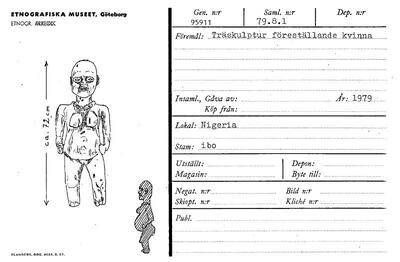 ETNOGRAFISKA MUSEET, Göteborg
ETNOGR. ARKIDEC
ca. 72 cm
Gen. n:r
95911
Saml. n:r
79.8.1
Dep. n:r
Föremål: Träskulptur föreställande kvinna
Intaml., Gåva av:
År: 1979
Köp från:
Lokal: Nigeria
Stam: ibo
Utställt:
Depon:
Magasin:
Byte till:
Negat. n:r
Bild n:r
Skiopt. n:r
Kliché n:r
Publ.